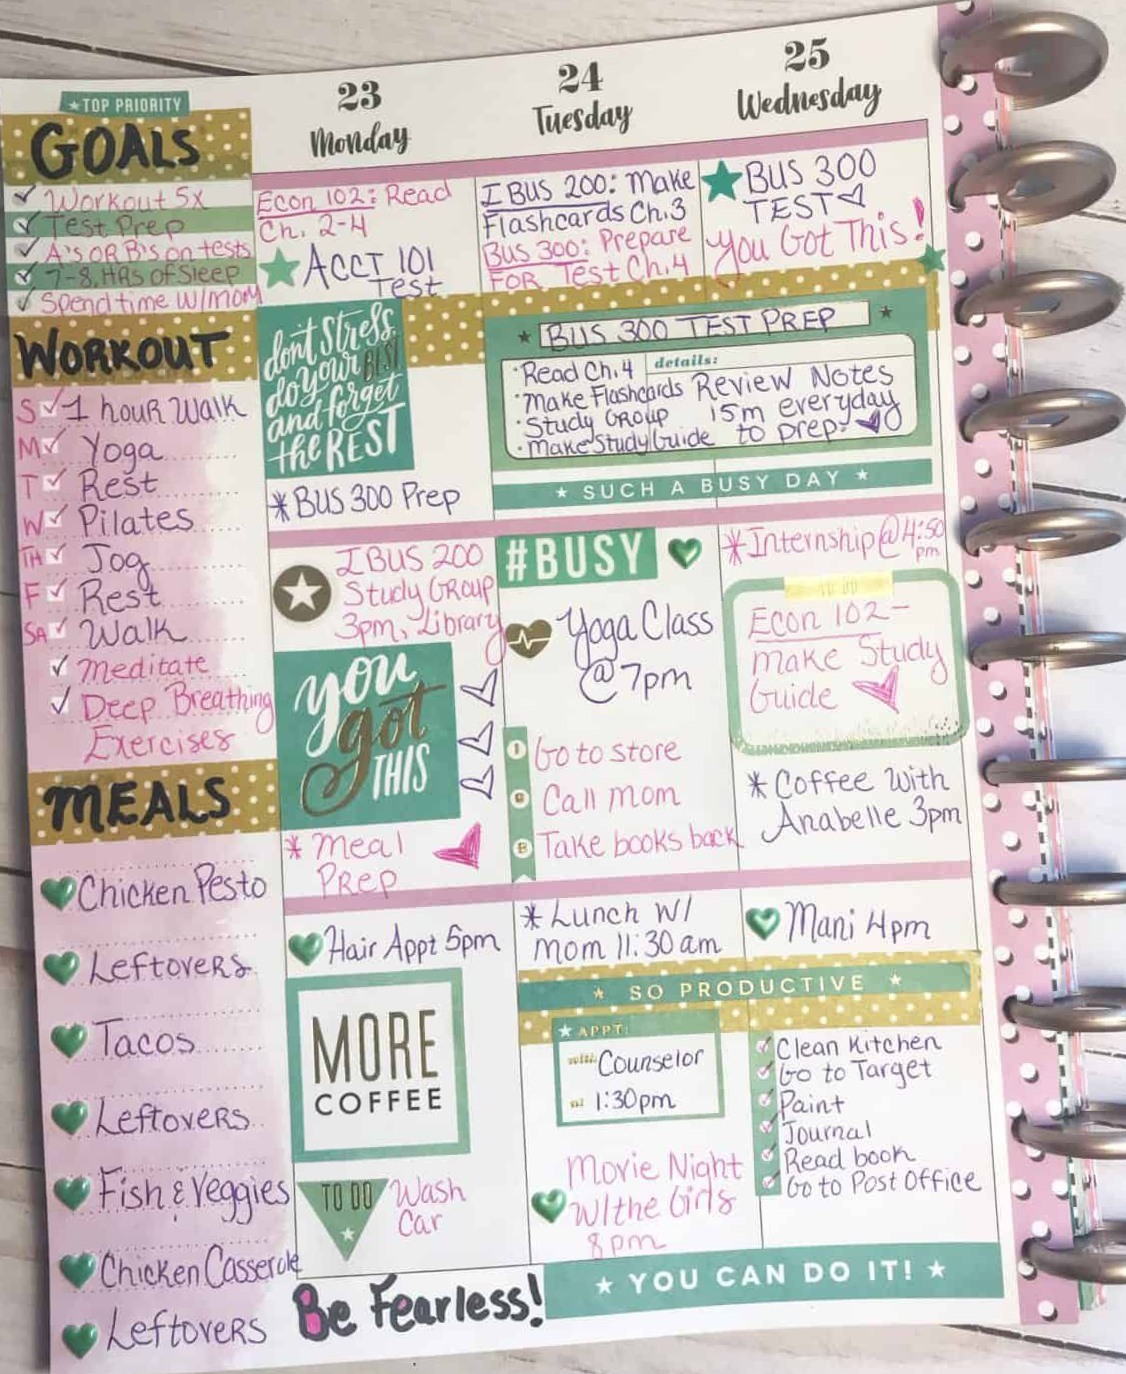 ★TOP PRIORITY
GOALS
Workout 5x
Test Prep
A's OR B's on tests
7-8 HRs of Sleep
Spend time w/mom
WORKOUT
S 1 hour Walk
M Yoga
T Rest
W Pilates
TH Jog
F Rest
SA Walk
Meditate
Deep Breathing
Exercises
MEALS
Chicken Pesto
Leftovers
Tacos
Leftovers
Fish & Veggies
Chicken Casserole
Leftovers
23
Monday
Econ 102: Read
Ch. 2-4
ACCT 101
Test
don't Stress,
do your BEST
and forget
the REST
*BUS 300 Prep
IBUS 200
Study Group
3pm, Library
you
got
THIS
* Meal
Prep
Hair Appt 5pm
MORE
COFFEE
TO DO
Wash
Car
Be Fearless!
24
Tuesday
IBUS 200: Make
Flashcards Ch.3
BUS 300: Prepare
FOR Test Ch.4
BUS 300 TEST PREP
details:
·Read Ch.4
·Make Flashcards
·Study Group
·Make Study Guide
Review Notes
15m everyday
to prep!
★ SUCH A BUSY DAY ★
#BUSY
Yoga Class
@7pm
Go to store
Call mom
Take books back
*Lunch W/
mom 11:30am
★ SO PRODUCTIVE ★
★ APPT:
with Counselor
at 1:30pm
Movie Night
W/the Girls
8pm
★ YOU CAN DO IT! ★
25
Wednesday
BUS 300
TEST
You Got This!
*Internship@4:50
pm
TO DO
Econ 102-
make Study
Guide
*Coffee With
Anabelle 3pm
Mani 4pm
Clean Kitchen
Go to Target
Paint
Journal
Read book
Go to Post Office